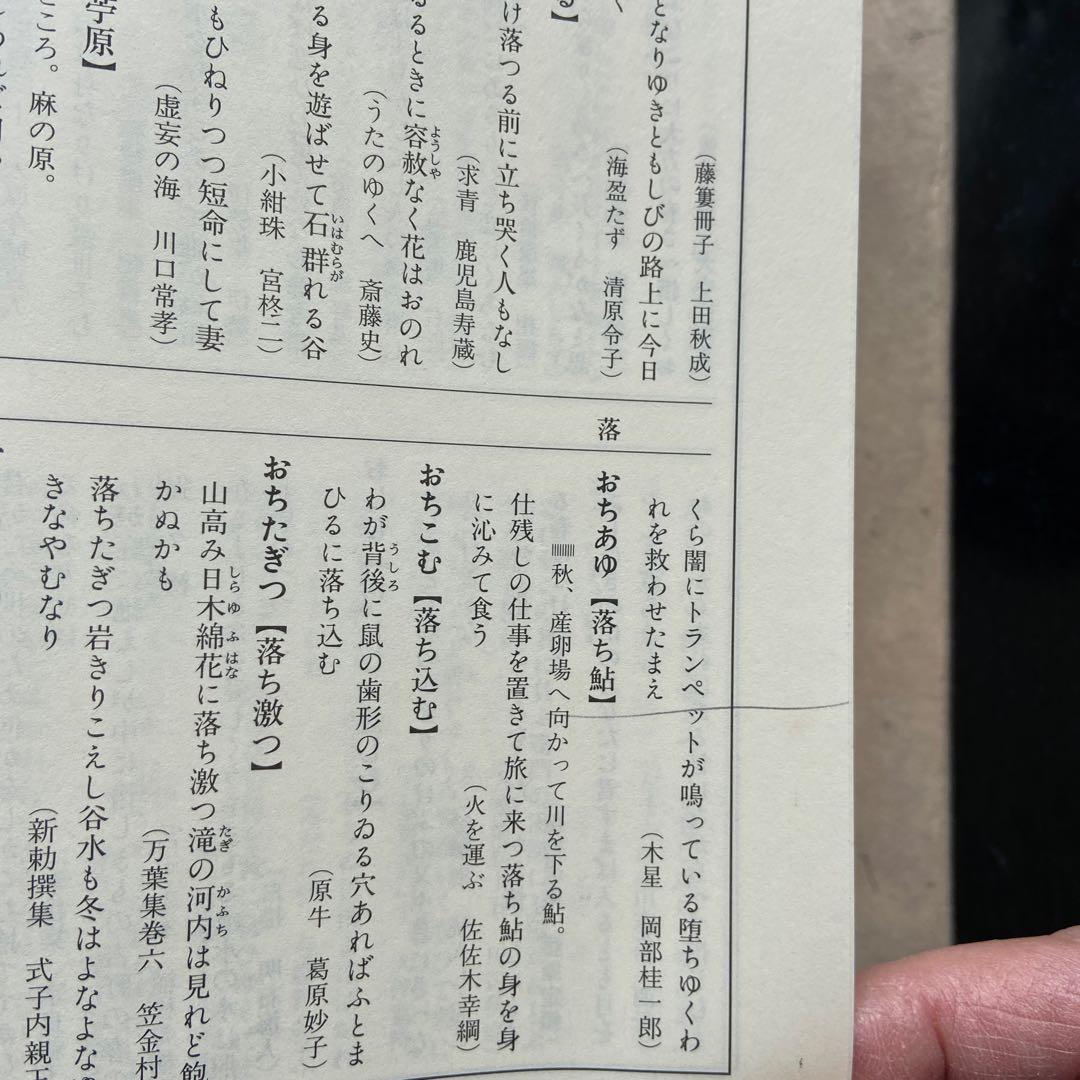 （藤簍冊子　上田秋成）
となりゆきともしびの路上に今日
（海盈たず　清原令子）
け落つる前に立ち哭く人もなし
（求青　鹿児島寿蔵）
るときに容赦なく花はおのれ
ようしや
（うたのゆくへ　斎藤史）
る身を遊ばせて石群れる谷
いはむらが
（小紺珠　宮柊二）
もひねりつつ短命にして妻
（虚妄の海　川口常孝）
原】
ころ。麻の原。
落
くら闇にトランペットが鳴っている堕ちゆくわ
れを救わせたまえ
（木星　岡部桂一郎）
おちあゆ【落ち鮎】
秋、産卵場へ向かって川を下る鮎。
仕残しの仕事を置きて旅に来つ落ち鮎の身を身
に沁みて食う
（火を運ぶ　佐佐木幸綱）
おちこむ【落ち込む】
わが背後に鼠の歯形のこりゐる穴あればふとま
うしろ
ひるに落ち込む
（原牛　葛原妙子）
おちたぎつ【落ち激つ】
山高み日木綿花に落ち激つ滝の河内は見れど飽
しらゆふはな
たぎ
かふち
かぬかも
（万葉集巻六　笠金村
落ちたぎつ岩きりこえし谷水も冬はよなよな
きなやむなり
（新勅撰集　式子内親王